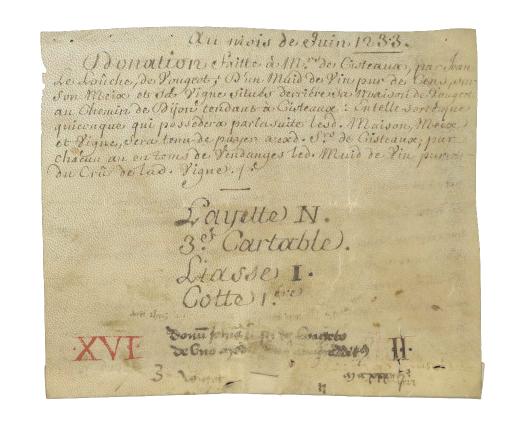 Au mois de Juin 1233.
Donation faitte à M.rs de Cisteaux, par Jean
Le Louche, de Vougeot; D'un Muid de Vin pur de Cens, sur
Son Meix et sa Vigne situés derrière sa Maison de Vougeot
au Chemin de Dijon tendant à Cisteaux: Entelle sorte que
quiconque qui possedera par la suite lesd. Maison, Meix,
et Vigne, sera tenu de payer auxd. S.rs de Cisteaux, par
chacun an en tems de Vendanges led. Muid de Vin pur
du Crû de lad. Vigne.
Layette N.
3.e Cartable.
Liasse I.
Cotte 1.ere
XVI II
de uno
3